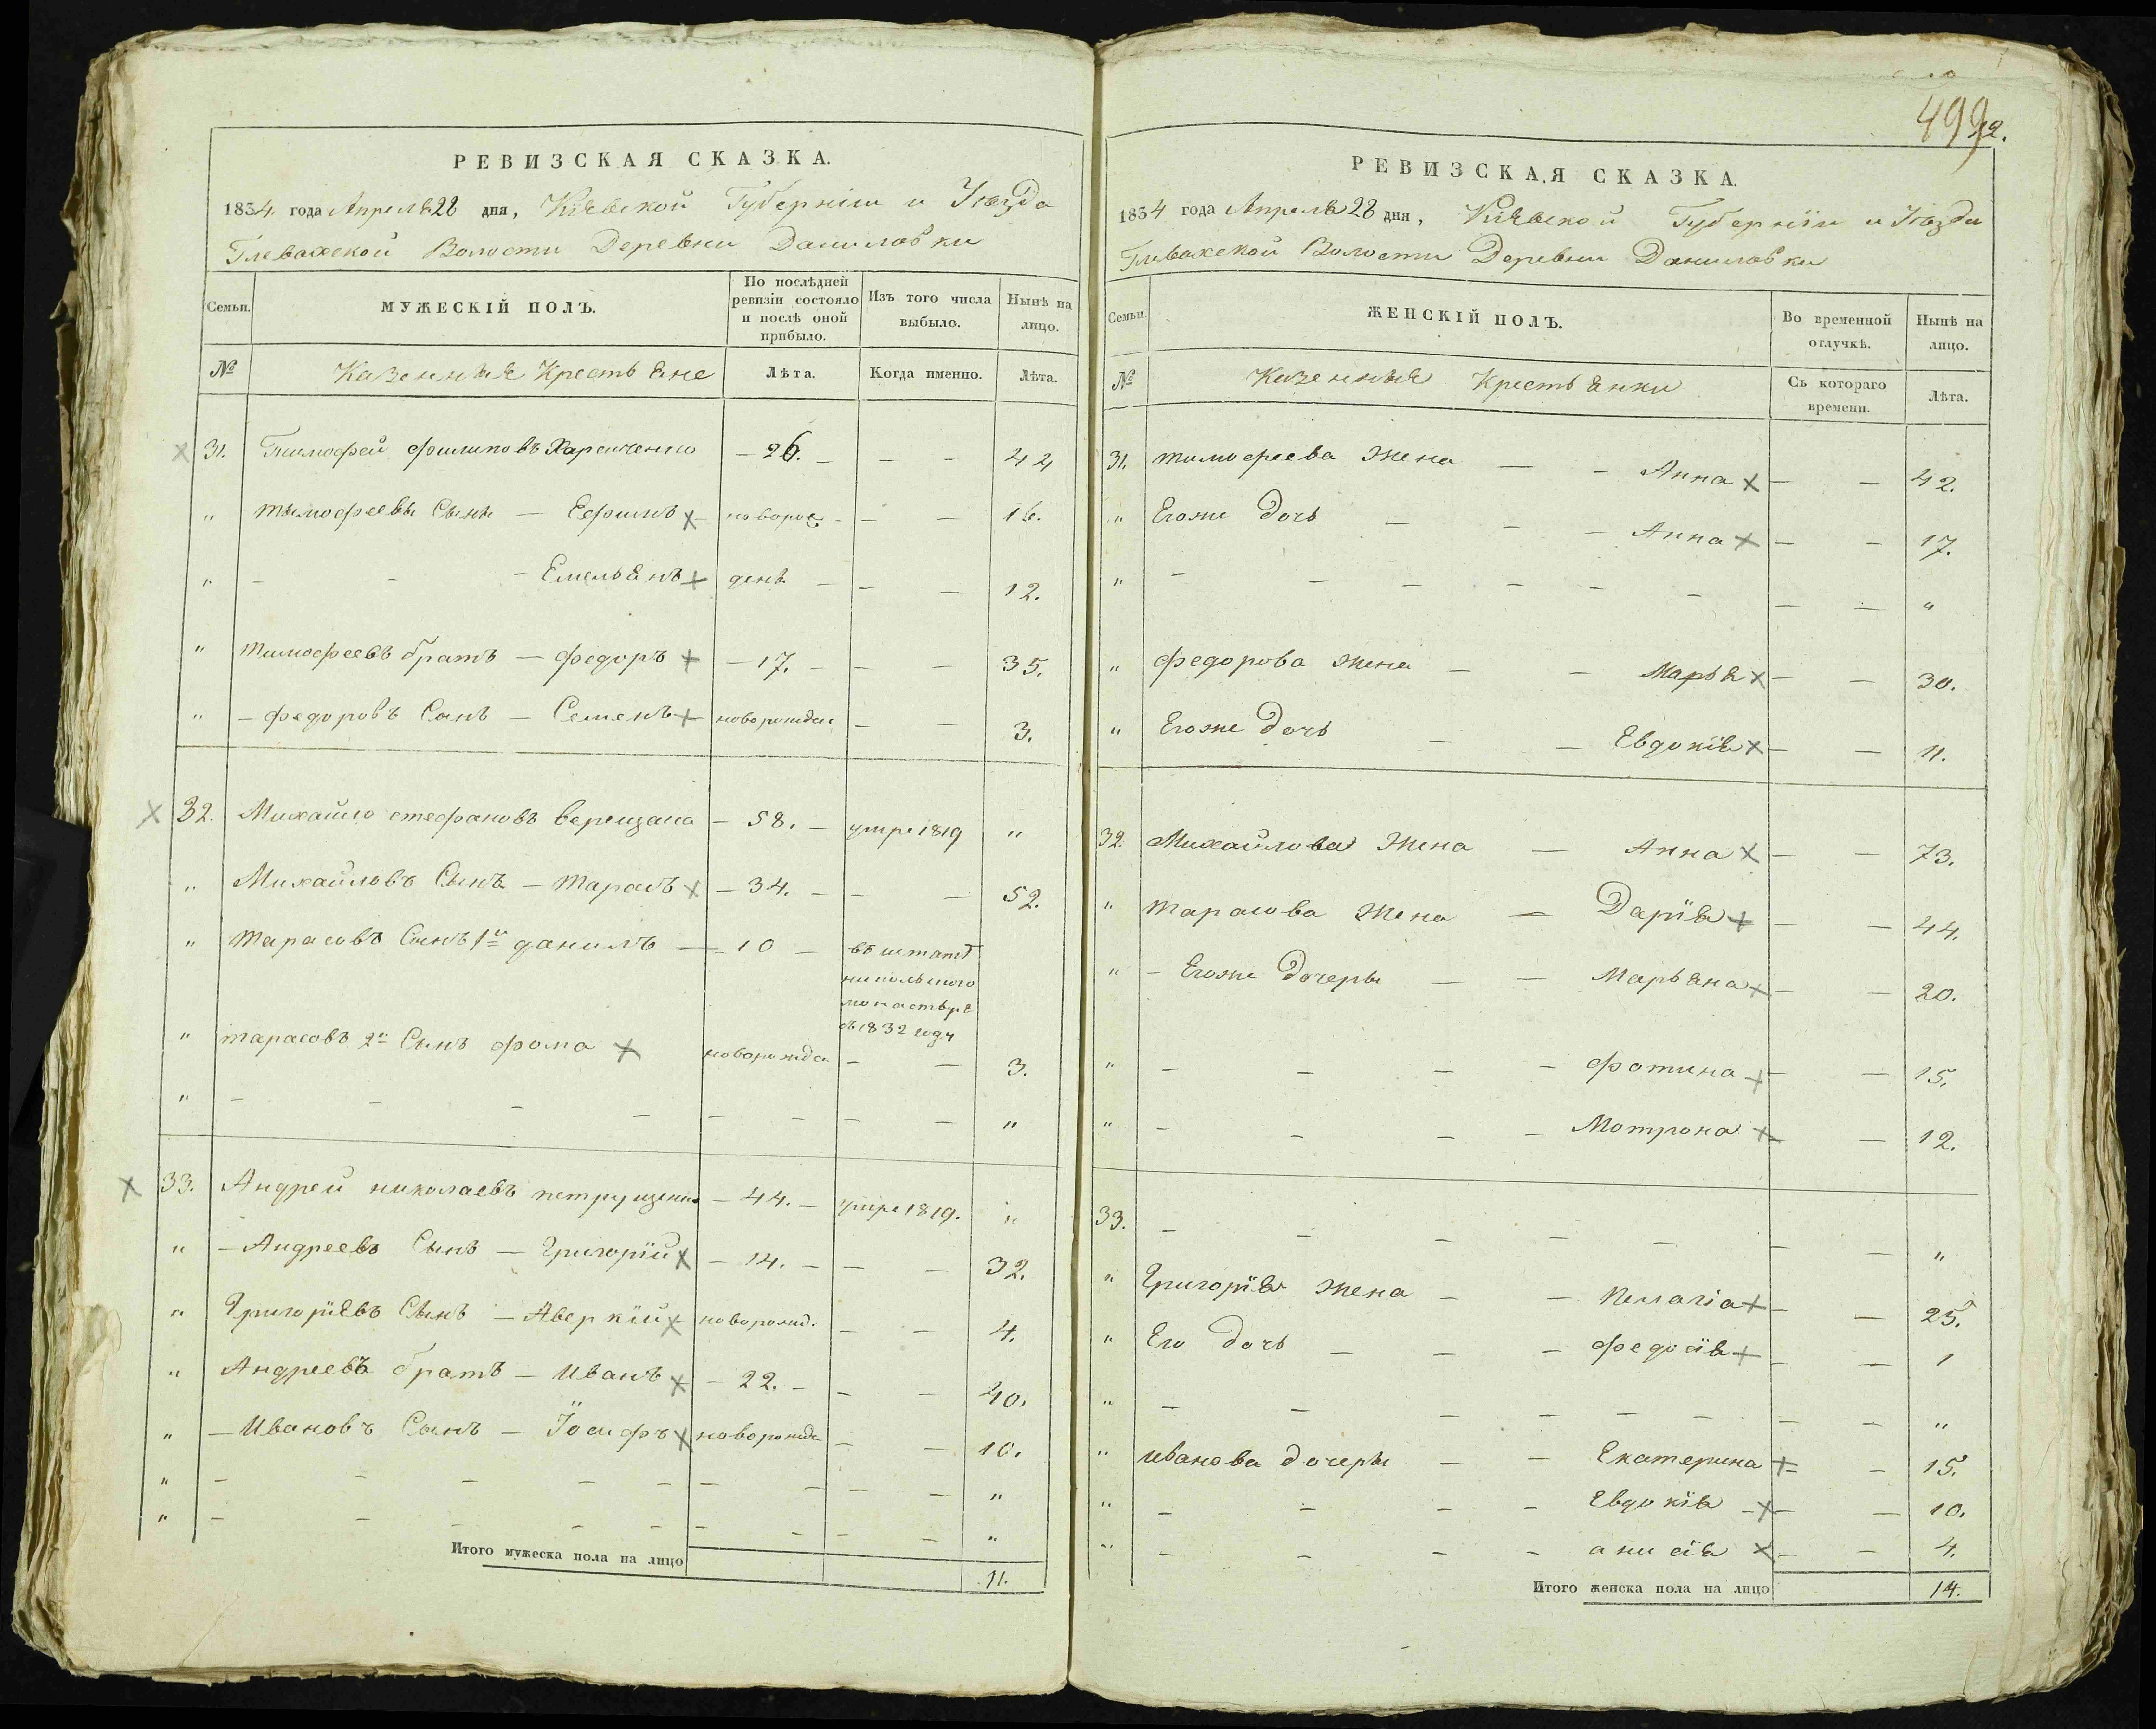 РЕВИЗСКАЯ СКАЗКА.
1834. года Апреля 28 дня, Кіевской Губерніи и Уезда
Глевахской Волости Деревни Даниловки
Семьи.
МУЖЕСКІЙ ПОЛЪ.
По послѣдней ревизіи состояло и послѣ оной прибыло.
Изъ того числа выбыло.
Нынѣ на лицо.
№ Казенныя Крестьяне Лѣта. Когда именно. Лѣта.
31. Тимофей филиповъ Харченко — 26. — — — 44
" тимофеевы Сыны — Ефимъ новорож — — — 16.
" — — — Емельянъ дены — — — 12.
" тимофеевъ братъ — федоръ — 17. — — — 35.
" — федоровъ Сынъ — Семенъ новорожден — — 3.
32. Михайло стефановъ верещака — 58. — умре 1819 "
" Михайловъ Сынъ — тарасъ — 34. — — — 52.
" тарасовъ Сынъ 1й данилъ — 10 — въ штатѣ
никольского
монастыря
съ 1832 году
" тарасовъ 2й Сынъ фома новорожден — — 3.
" — — — — — — — — "
33. Андрей николаевъ петрущенко — 44. — умре 1819. "
" — Андреевъ Сынъ — Григорій — 14. — — — 32.
" Григоріевъ Сынъ — Аверкій новорожд. — — 4.
" Андреевъ братъ — Иванъ — 22. — — — 40.
" — Ивановъ Сынъ — Іосифъ новорожде — — 16.
" — — — — — — — — — "
" — — — — — — — — — "
Итого мужеска пола на лицо 11.
499
12.
РЕВИЗСКАЯ СКАЗКА.
1834 года Апреля 28 дня, Кіевской Губерніи и Уезда
Глевахской Волости Деревни Даниловки
Семьи.
ЖЕНСКІЙ ПОЛЪ.
Во временной отлучкѣ.
Нынѣ на лицо.
№ Казенныя Крестьянки Съ котораго времени. Лѣта.
31. тимофеева жена — — Анна — — 42.
" Егоже дочь — — — Анна — — 17.
" — — — — — — — — "
" федорова жена — — Марья — — 30.
" Егоже дочь — — Евдокія — — 11.
32. Михайлова жена — Анна — — 73.
" тарасова жена — Дарія — — 44.
" — Егоже дочеры — — Марьяна — — 20.
" — — — — фотина — — 15.
" — — — — Мотрона — — 12.
33. — — — — — — — "
" Григорія жена — — Пелагіа — — 25.
" Его дочь — — — федосія — — 1
" — — — — — — — — "
" иванова дочеры — — Екатерина — — 15.
" — — — — Евдокія — — 10.
" — — — — анисія — — 4.
Итого женска пола на лицо 14.